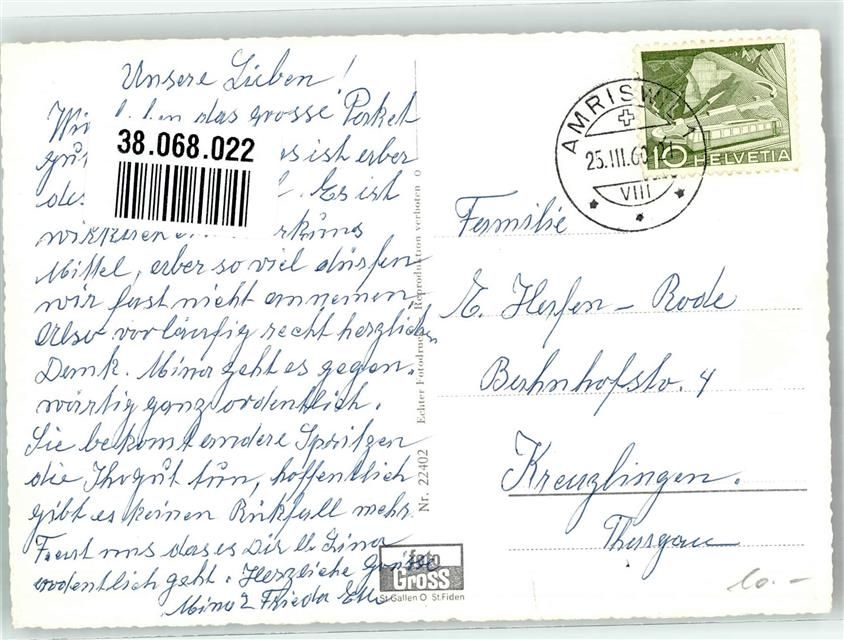 Unsere Lieben!
Wir haben das grosse Parket
gut es ist aber
des Es ist
wirklich
Mittel, aber so viel dürfen
wir fast nicht annemen,
Also vorläufig recht herzlichen
Dank. Mina geht es gegen-
wärtig ganz ordentlich.
Sie bekomt andere Spritzen
die Ihr gut tun, hoffentlich
gibt es keinen Rükfall mehr.
Freut uns das es Dir u. Lina
ordentlich geht. Herzliche Grüsse
Mina & Frieda
38.068.022
Nr. 22402 Echter Fotodruck Reproduktion verboten
foto
Gross
St. Gallen O St. Fiden
AMRISWIL 1
25.III.60
VIII
10 HELVETIA
Familie
E. Hafen-Rode
Bahnhofstr. 4
Kreuzlingen.
Thurgau
10.-